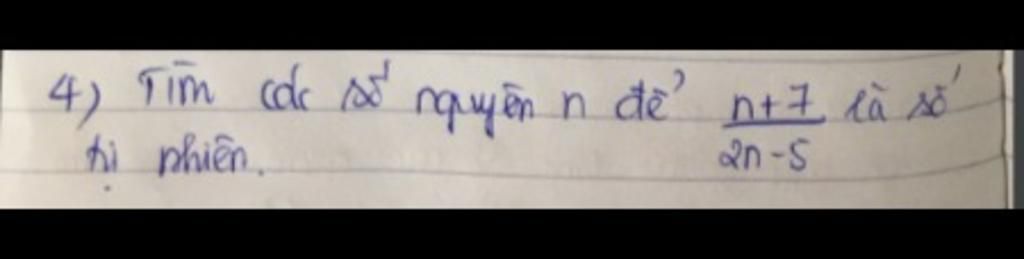 4) Tìm các số nguyên n để n+7/2n-5 là số
tự nhiên.